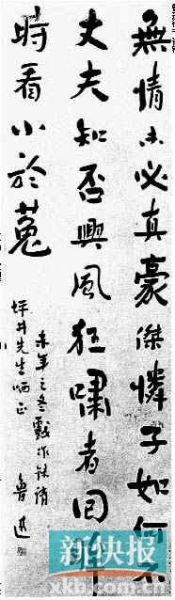 無情未必真豪傑憐子如何不
丈夫知否興風狂嘯者回眸
時看小於菟
未年之冬戲作錄請
坪井先生哂正
魯迅
新快报
xkb.com.cn